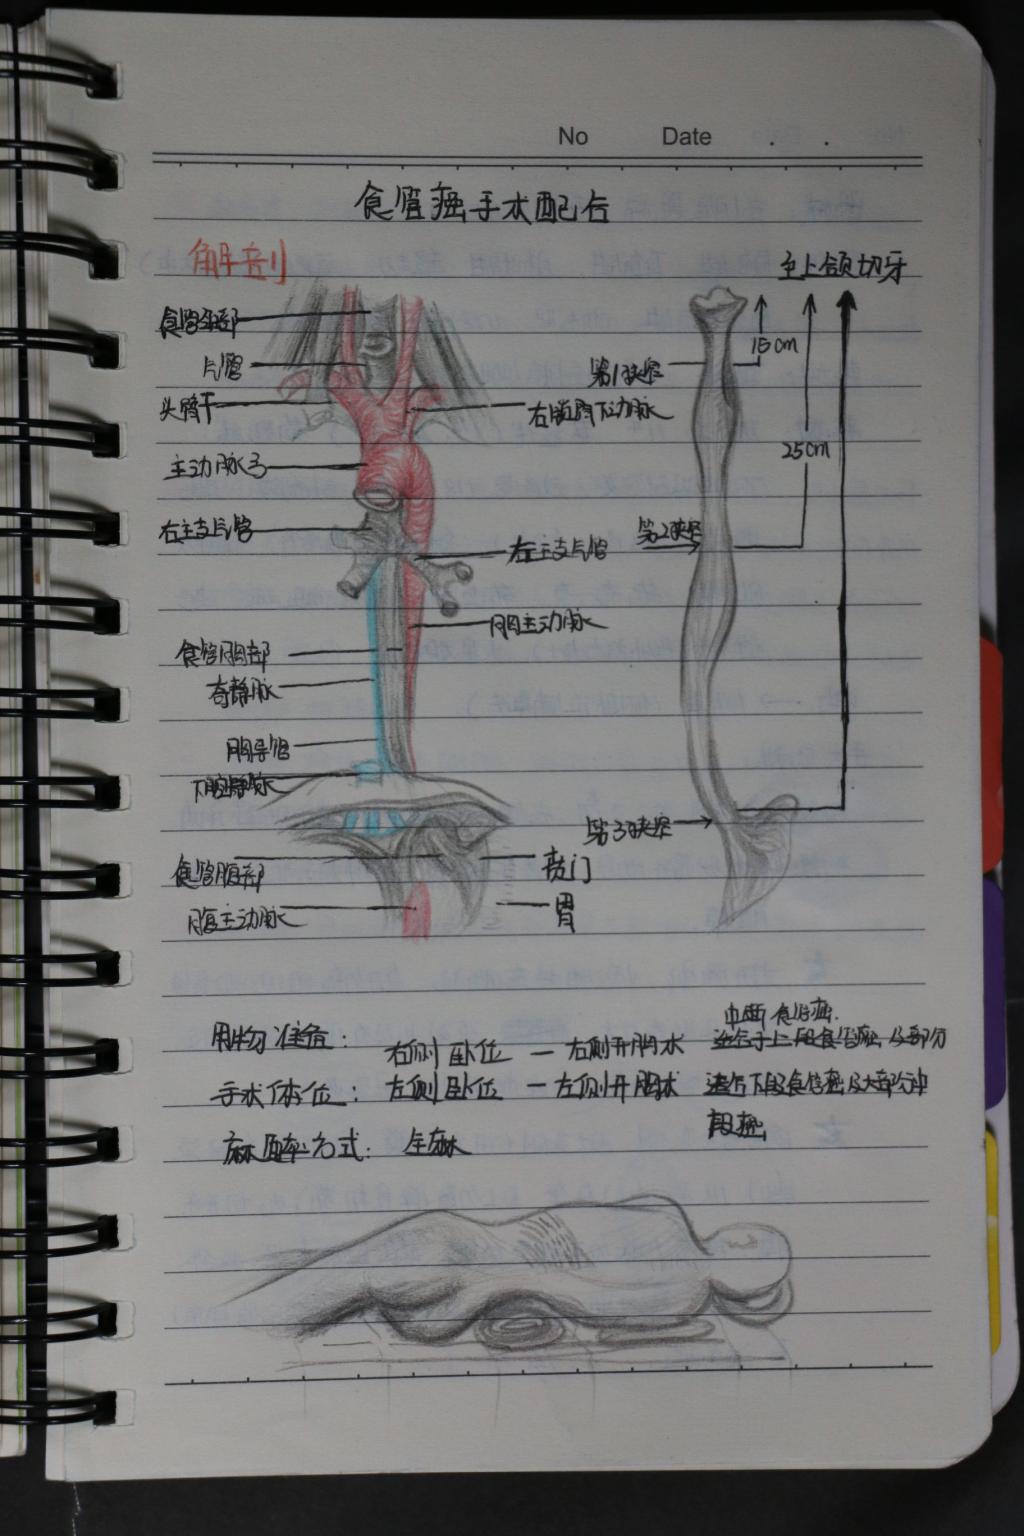 No Date . .
食管癌手术配合
解剖
至上颌切牙
食管颈部
15cm
气管
第1狭窄
头臂干
25cm
主动脉弓
右主支气管
第2狭窄
左主支气管
胸主动脉
食管胸部
奇静脉
胸导管
下腔静脉
第3狭窄
食管腹部
贲门
腹主动脉
胃
用物准备：
中段食管癌.
右侧卧位 — 右侧开胸术
手术体位：左侧卧位 — 左侧开胸术 适合下段食管癌及大部分中
段癌
麻醉方式：全麻